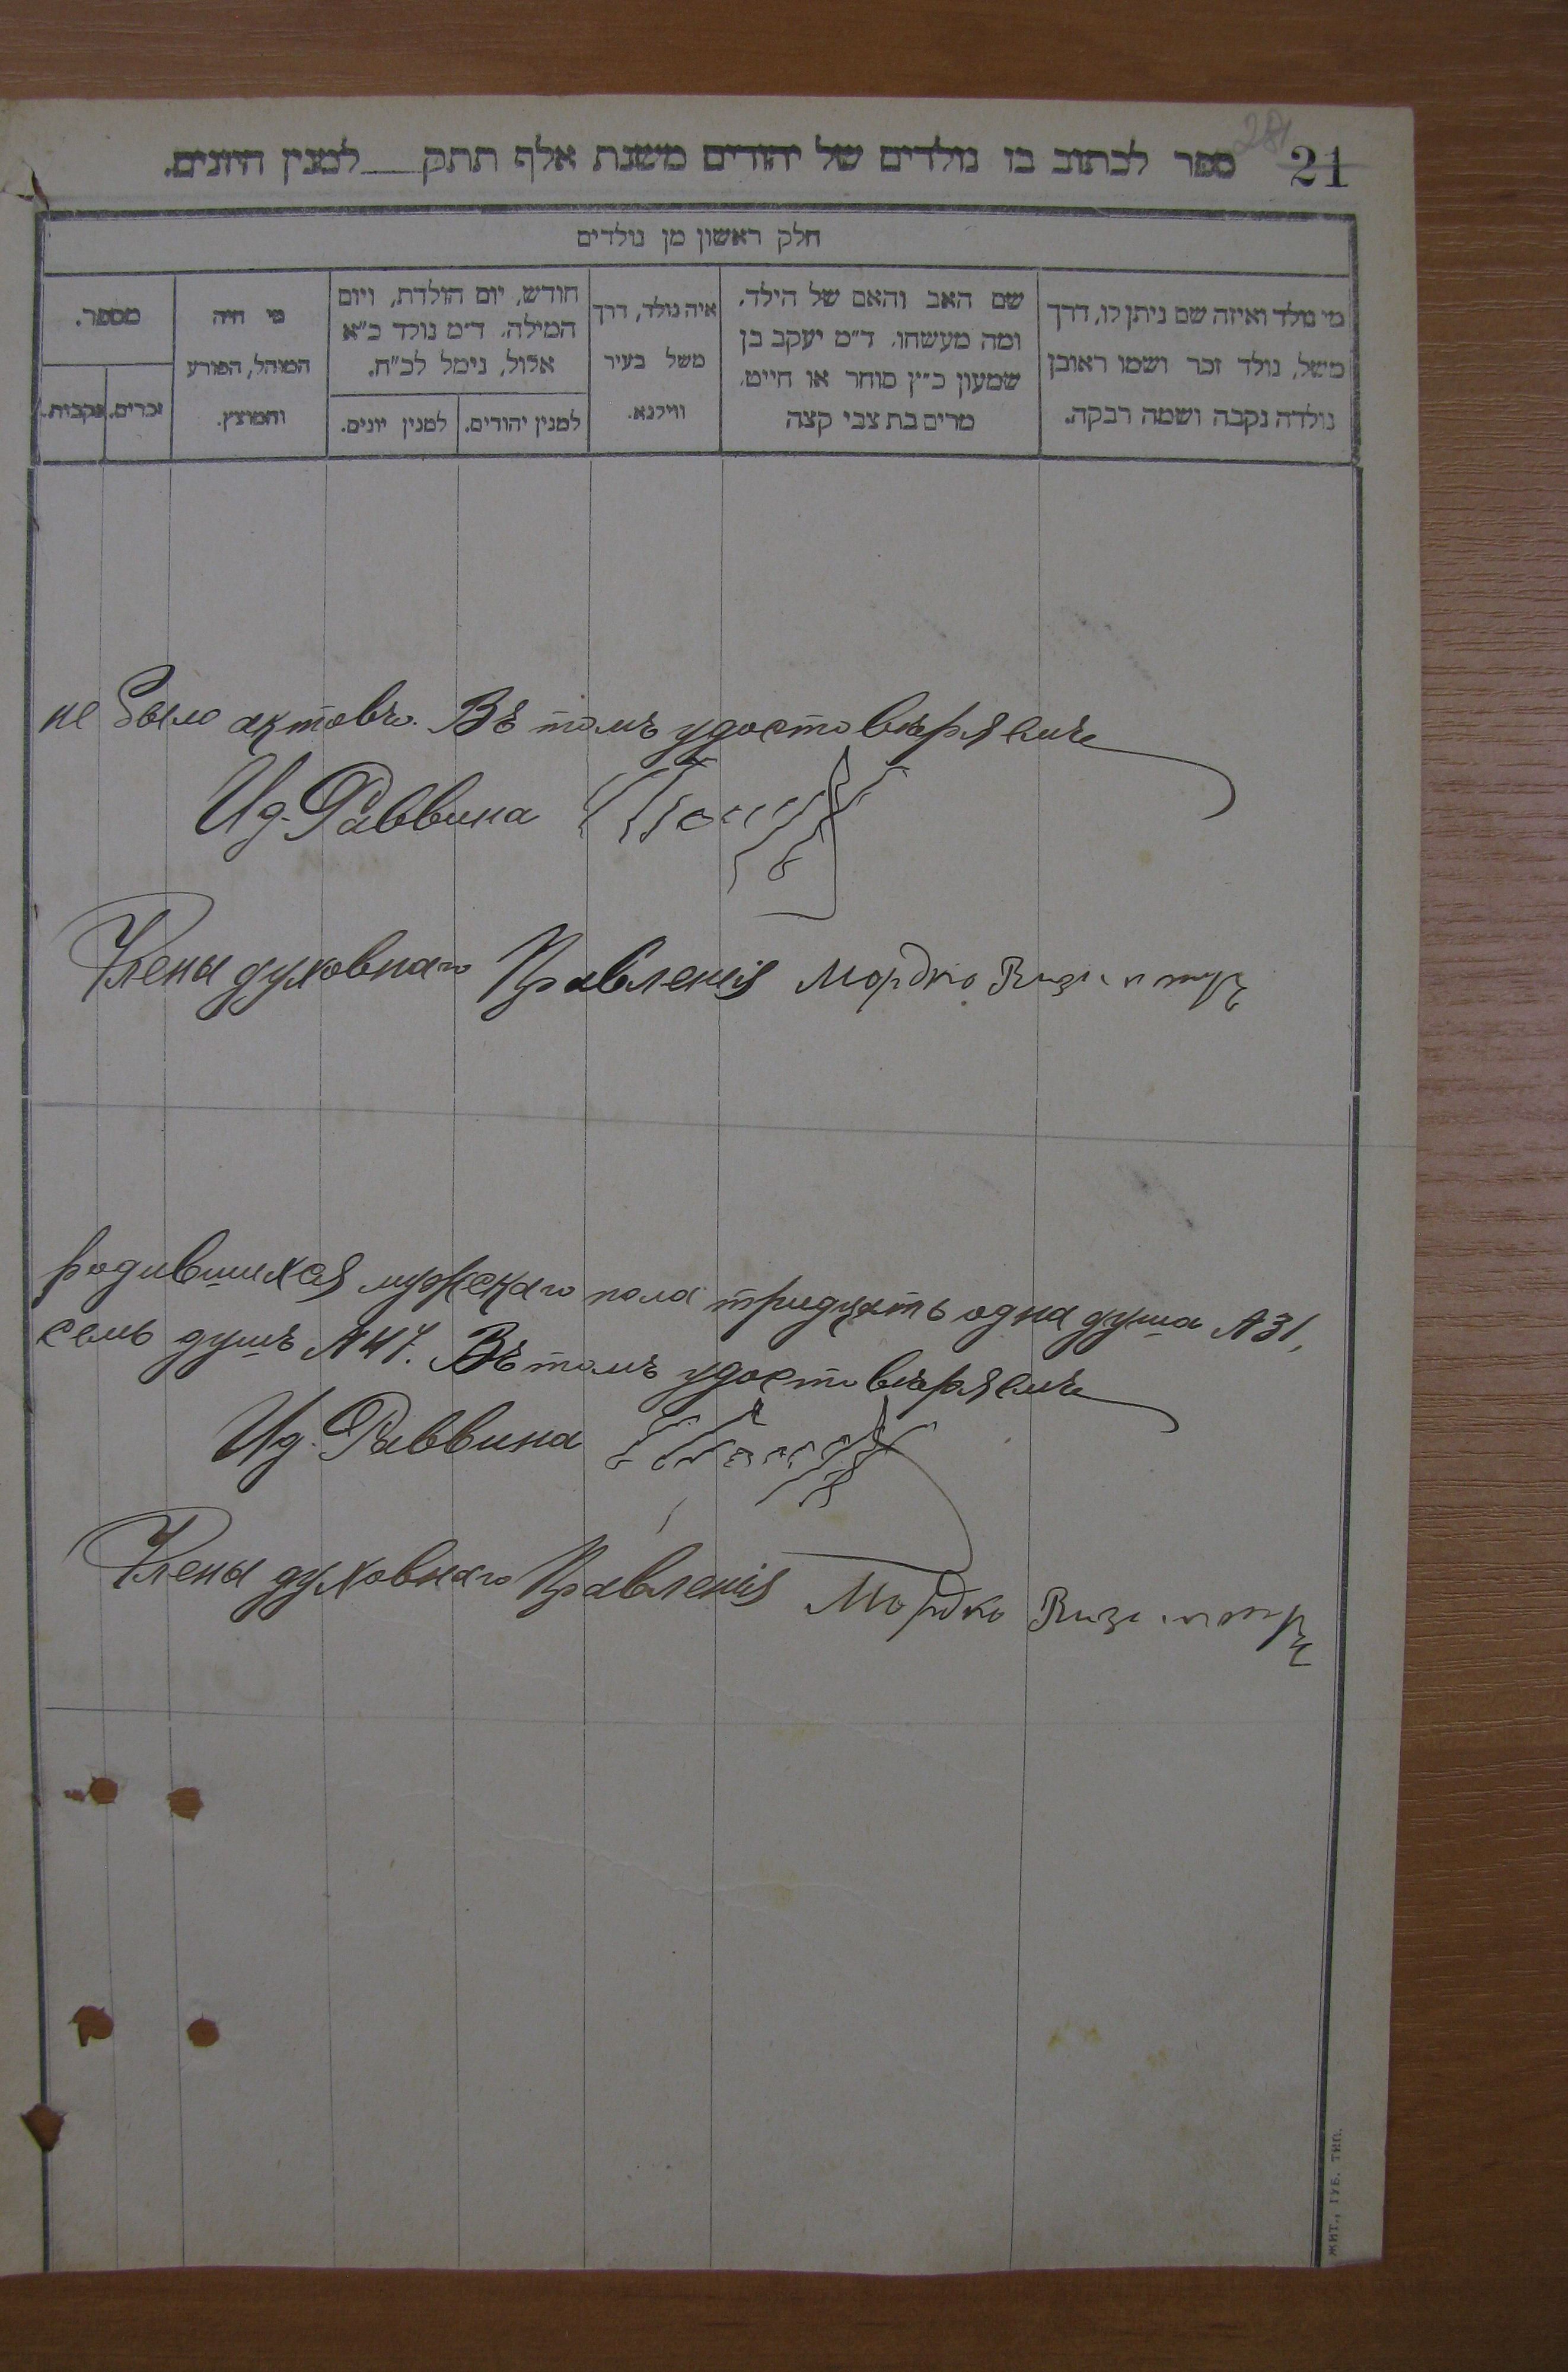 21 ספר לכתוב בו נולדים של יהודים משנת אלף תתק למנין היונים.
חלק ראשון מן נולדים
מי נולד ואיזה שם ניתן לו, דרך
משל, נולד זכר ושמו ראובן
נולדה נקבה ושמה רבקה.
שם האב והאם של הילד,
ומה מעשהו. ד״מ יעקב בן
שמעון כ״ץ סוחר או חייט,
מרים בת צבי קצה
איה נולד, דרך
משל בעיר
ווילנא.
חודש, יום הולדת, ויום
המילה. ד״מ נולד כ״א
אלול, נימל לכ״ח.
למנין יהודים.
למנין יונים.
מי היה
המוהל, הפורע
והמוצץ.
מספר.
זכרים.
נקבות.
не было актовъ. Въ томъ удостовѣряемъ
Ид. Раввина
Члены духовнаго Правленія Мордко
родившихся мужскаго пола тридцать одна душа №31,
семь душъ №47. Въ томъ удостовѣряемъ
Ид. Раввина
Члены духовнаго Правленія Мордко
ЖИТ., ГУБ. ТИП.